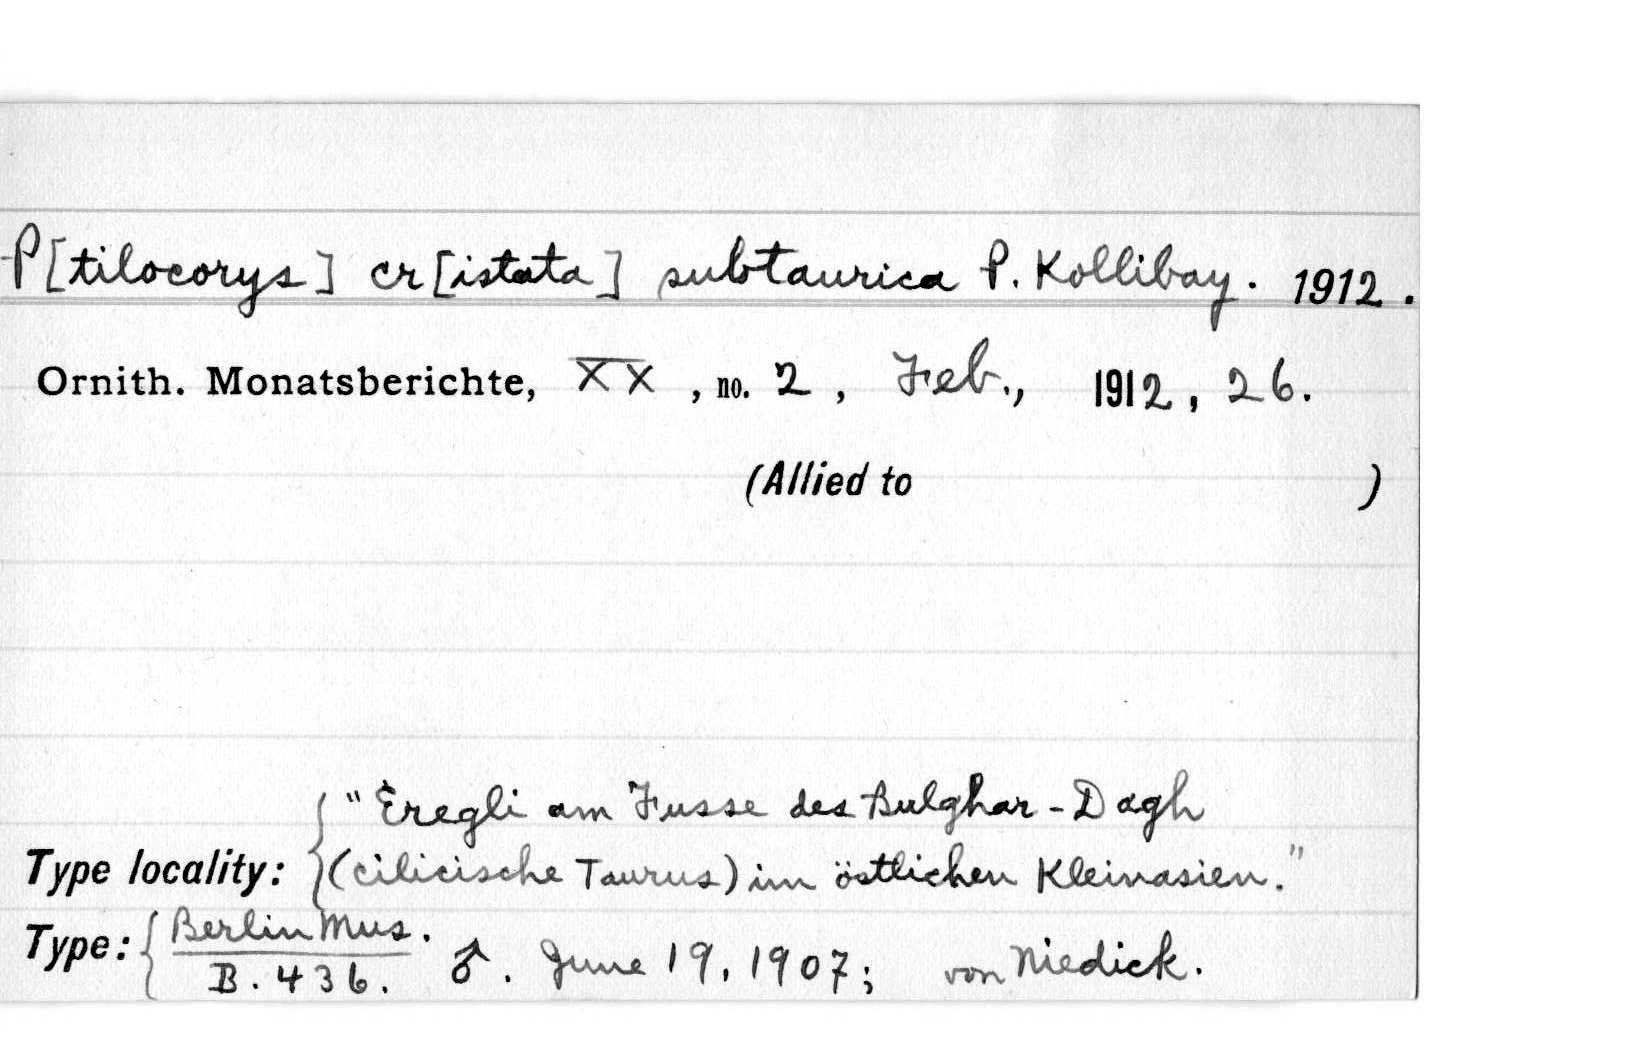 P[tilocorys] cr[istata] subtaurica P. Kollibay. 1912.
Ornith. Monatsberichte, XX, no. 2, Feb., 1912, 26.
(Allied to )
"Eregli am Fusse des Bulghar-Dagh
Type locality: (cilicische Taurus) im östlichen Kleinasien."
Type: Berlin Mus.
B. 436. ♂. June 19, 1907; von Niedick.